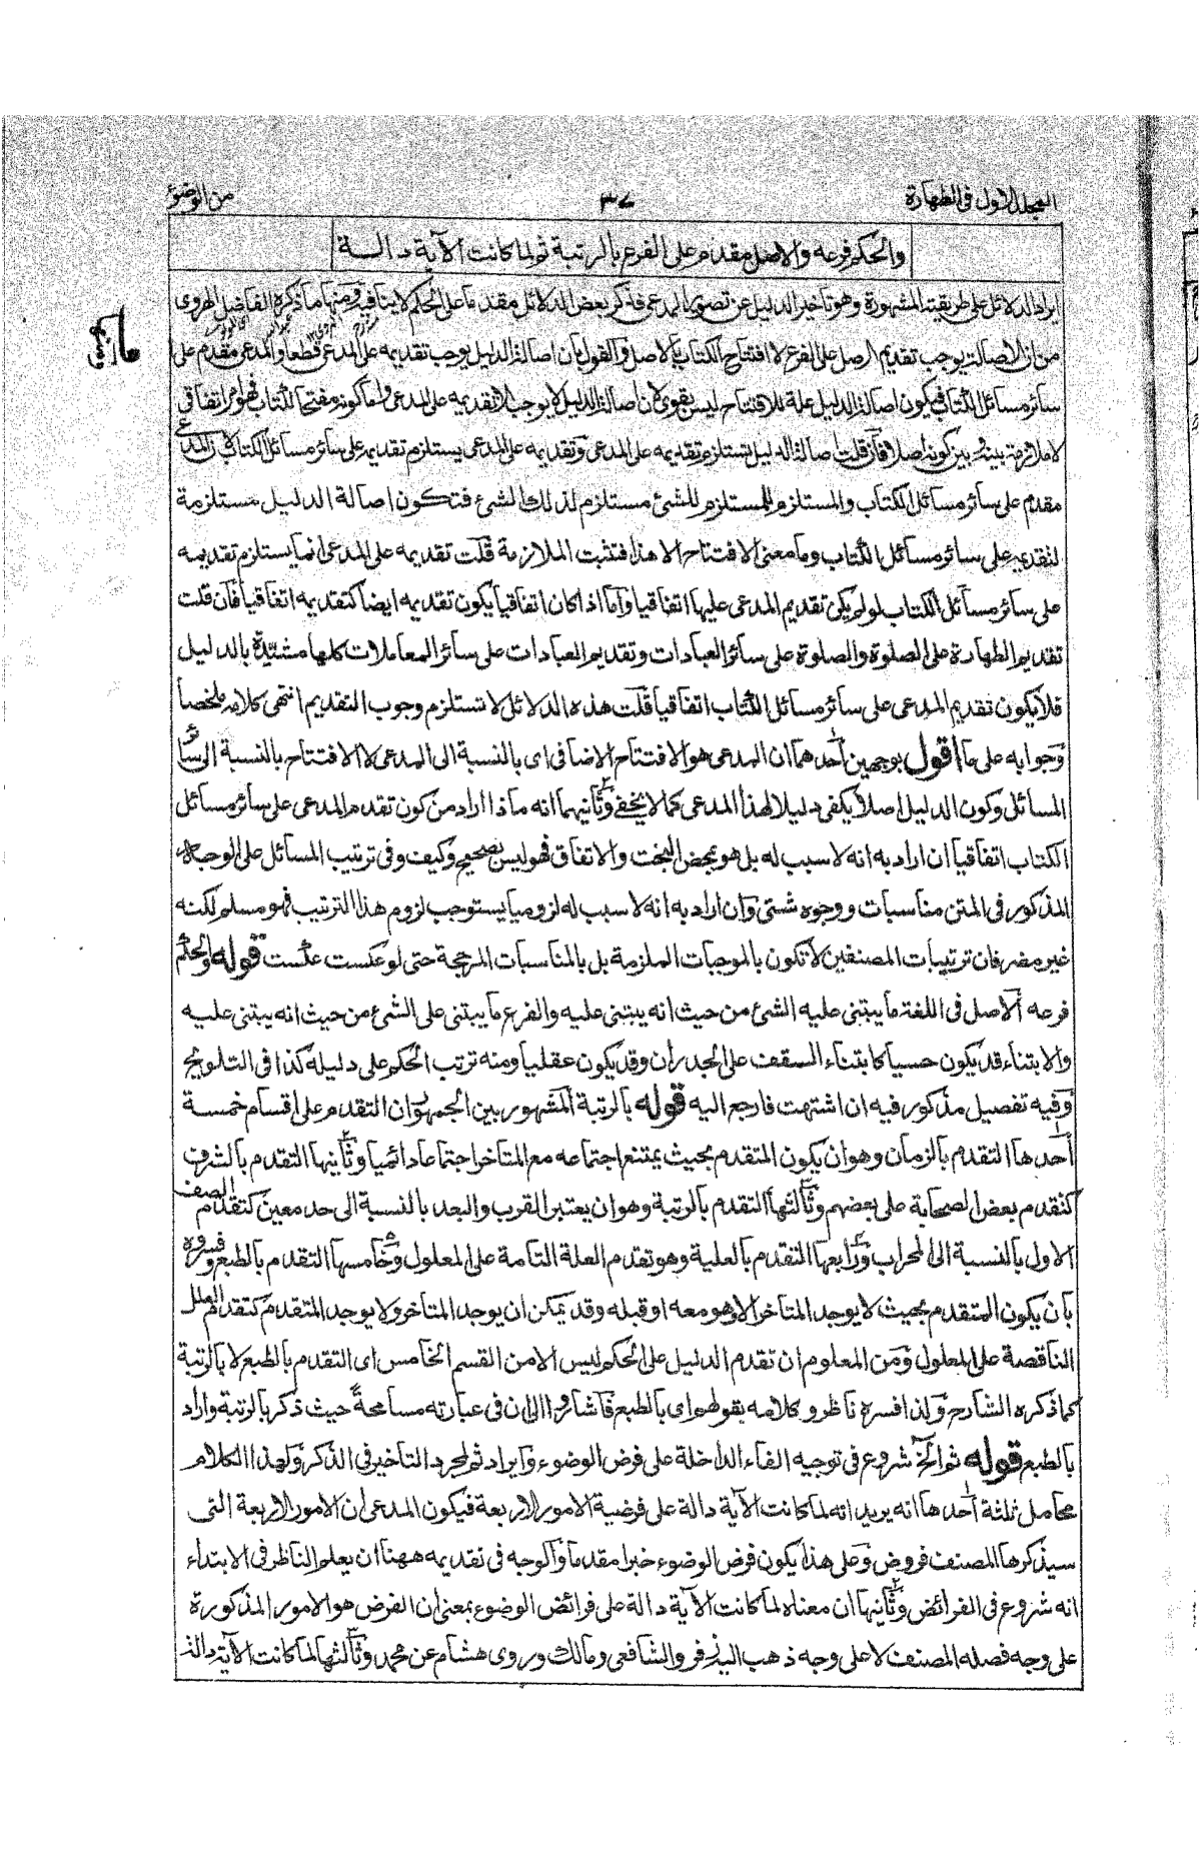 المجلد الاول فى الطهارة
٣٧
من الوضوء
والحكم فرعه والاصل مقدم على الفرع بالرتبة ثم لما كانت الآية دالـــة
ايراد الدلائل على طريقته المشهورة وهو تاخير الدليل عن تصوير المدعى فذكر بعض الدلائل مقدما على الحكم لا ينافيه ومنها ما ذكره الفاضل الهروى
من ان الاصالة يوجب تقديم الاصل على الفرع لا افتتاح الكتاب بالاصل والقول بان اصالة الدليل يوجب تقديمه على المدعى قطعا والمدعى مقدم على
سائر مسائل الكتاب فيكون اصالة الدليل علة للافتتاح ليس بقوى لان اصالة الدليل لا يوجب الا تقديمه على المدعى واما كونه مفتتحا للكتاب فهو امر اتفاقى
لا ملازمة بينه وبين كونه اصلا فان قلت اصالة الدليل تستلزم تقديمه على المدعى وتقديمه على المدعى يستلزم تقديمه على سائر مسائل الكتاب لان المدعى
مقدم على سائر مسائل الكتاب والمستلزم للمستلزم للشئ مستلزم لذلك الشئ فتكون اصالة الدليل مستلزمة
لتقديمه على سائر مسائل الكتاب وما معنى الافتتاح الا هذا فتثبت الملازمة قلت تقديمه على المدعى انما يستلزم تقديمه
على سائر مسائل الكتاب لو لم يكن تقديم المدعى عليها اتفاقيا واما اذا كان اتفاقيا يكون تقديمه ايضا كتقديمه اتفاقيا فان قلت
تقديم الطهارة على الصلوة والصلوة على سائر العبادات وتقديم العبادات على سائر المعاملات كلها مشيّدة بالدليل
فلا يكون تقديم المدعى على سائر مسائل الكتاب اتفاقيا قلت هذه الدلائل لا تستلزم وجوب التقديم انتهى كلامه ملخصا
وجوابه على ما اقول بوجهين احدهما ان المدعى هو الافتتاح الاضافى اى بالنسبة الى المدعى لا الافتتاح بالنسبة الى سائر
المسائل وكون الدليل اصلا يكفى دليلا لهذا المدعى كما لا يخفى وثانيهما انه ماذا اراد من كون تقدم المدعى على سائر مسائل
الكتاب اتفاقيا ان اراد به انه لا سبب له بل هو بمحض البخت والاتفاق فهو ليس بصحيح وكيف وفى ترتيب المسائل على الوجه
المذكور فى المتن مناسبات ووجوه شتى وان اراد به انه لا سبب له لزوميا يستوجب لزوم هذا الترتيب فهو مسلم لكنه
غير مضر فان ترتيبات المصنفين لا تكون بالموجبات الملزمة بل بالمناسبات المرجحة حتى لو عكست عكست قوله والحكم
فرعه الاصل فى اللغة ما يبتنى عليه الشئ من حيث انه يبتنى عليه والفرع ما يبتنى على الشئ من حيث انه يبتنى عليه
والابتناء قد يكون حسيا كابتناء السقف على الجدران وقد يكون عقليا ومنه ترتب الحكم على دليله كذا فى التلويح
وفيه تفصيل مذكور فيه ان اشتهيت فارجع اليه قوله بالرتبة المشهور بين الجمهور ان التقدم على اقسام خمسة
احدها التقدم بالزمان وهو ان يكون المتقدم بحيث يمتنع اجتماعه مع المتاخر اجتماعا دائميا وثانيها التقدم بالشرف
كتقدم بعض الصحابة على بعضهم وثالثها التقدم بالرتبة وهو ان يعتبر القرب والبعد بالنسبة الى حد معين كتقدم الصف
الاول بالنسبة الى المحراب ورابعها التقدم بالعلية وهو تقدم العلة التامة على المعلول وخامسها التقدم بالطبع وفسروه
بان يكون المتقدم بحيث لا يوجد المتاخر الا وهو معه او قبله وقد يمكن ان يوجد المتاخر ولا يوجد المتقدم كتقدم العلل
الناقصة على المعلول ومن المعلوم ان تقدم الدليل على الحكم ليس الا من القسم الخامس اى التقدم بالطبع لا بالرتبة
كما ذكره الشارح ولذا فسره ناظرو كلامه بقولهم اى بالطبع فاشاروا الى ان فى عبارته مسامحةً حيث ذكر بالرتبة واراد
بالطبع قوله ثم الخ شروع فى توجيه الفاء الداخلة على فرض الوضوء وايراد ثم لمجرد التاخير فى الذكر ولهذا الكلام
محامل ثلثة احدها انه يريد انه لما كانت الآية دالة على فرضية الامور الاربعة فيكون المدعى ان الامور الاربعة التى
سيذكرها المصنف فروض وعلى هذا يكون فرض الوضوء خبرا مقدما والوجه فى تقديمه ههنا ان يعلم الناظر فى الابتداء
انه شروع فى الفرائض وثانيها ان معناه لما كانت الآية دالة على فرائض الوضوء بمعنى ان الفرض هو الامور المذكورة
على وجه فصله المصنف لا على وجه ذهب اليه زفر والشافعى ومالك وروى هشام عن محمد وثالثها لما كانت الآية دالة